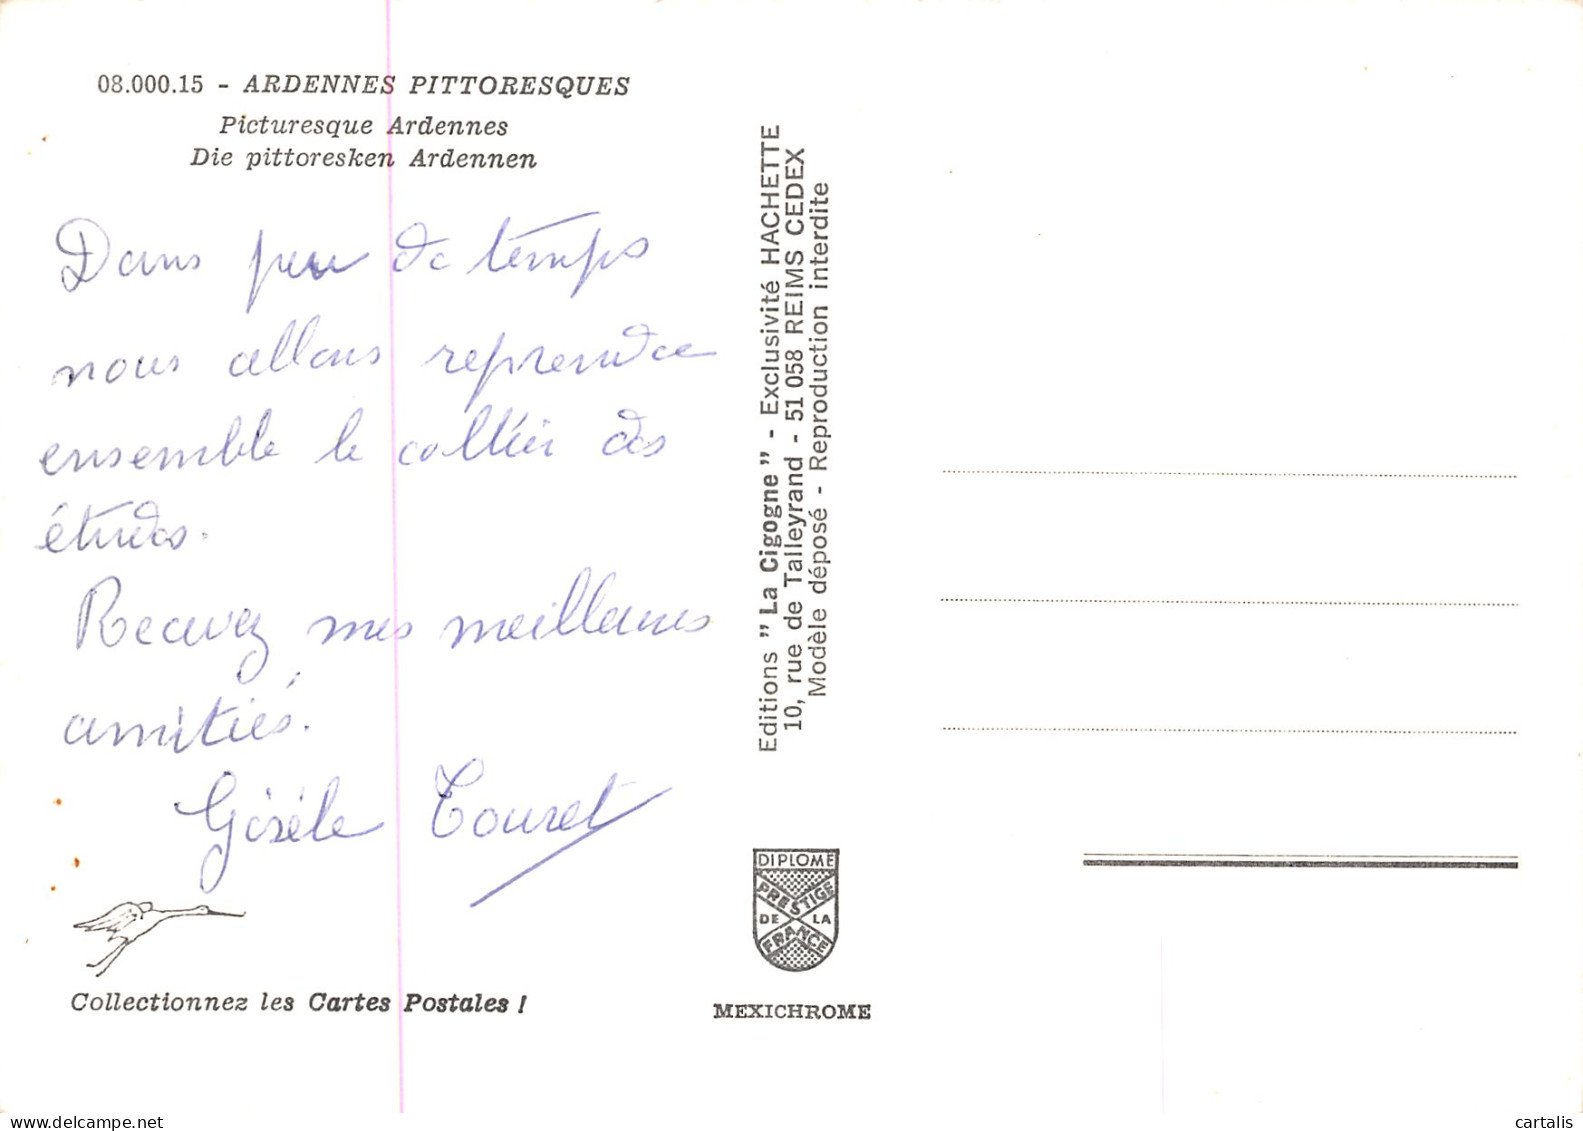 08.000.15 - ARDENNES PITTORESQUES
Picturesque Ardennes
Die pittoresken Ardennen
Dans peu de temps
nous allons reprendre
ensemble le collier des
études.
Recevez mes meilleures
amitiés.
Gisèle Touret
Collectionnez les Cartes Postales !
Editions " La Cigogne " - Exclusivité HACHETTE
10, rue de Talleyrand - 51 058 REIMS CEDEX
Modèle déposé - Reproduction interdite
DIPLOME
PRESTIGE
DE LA
FRANCE
MEXICHROME
delcampe.net
cartalis